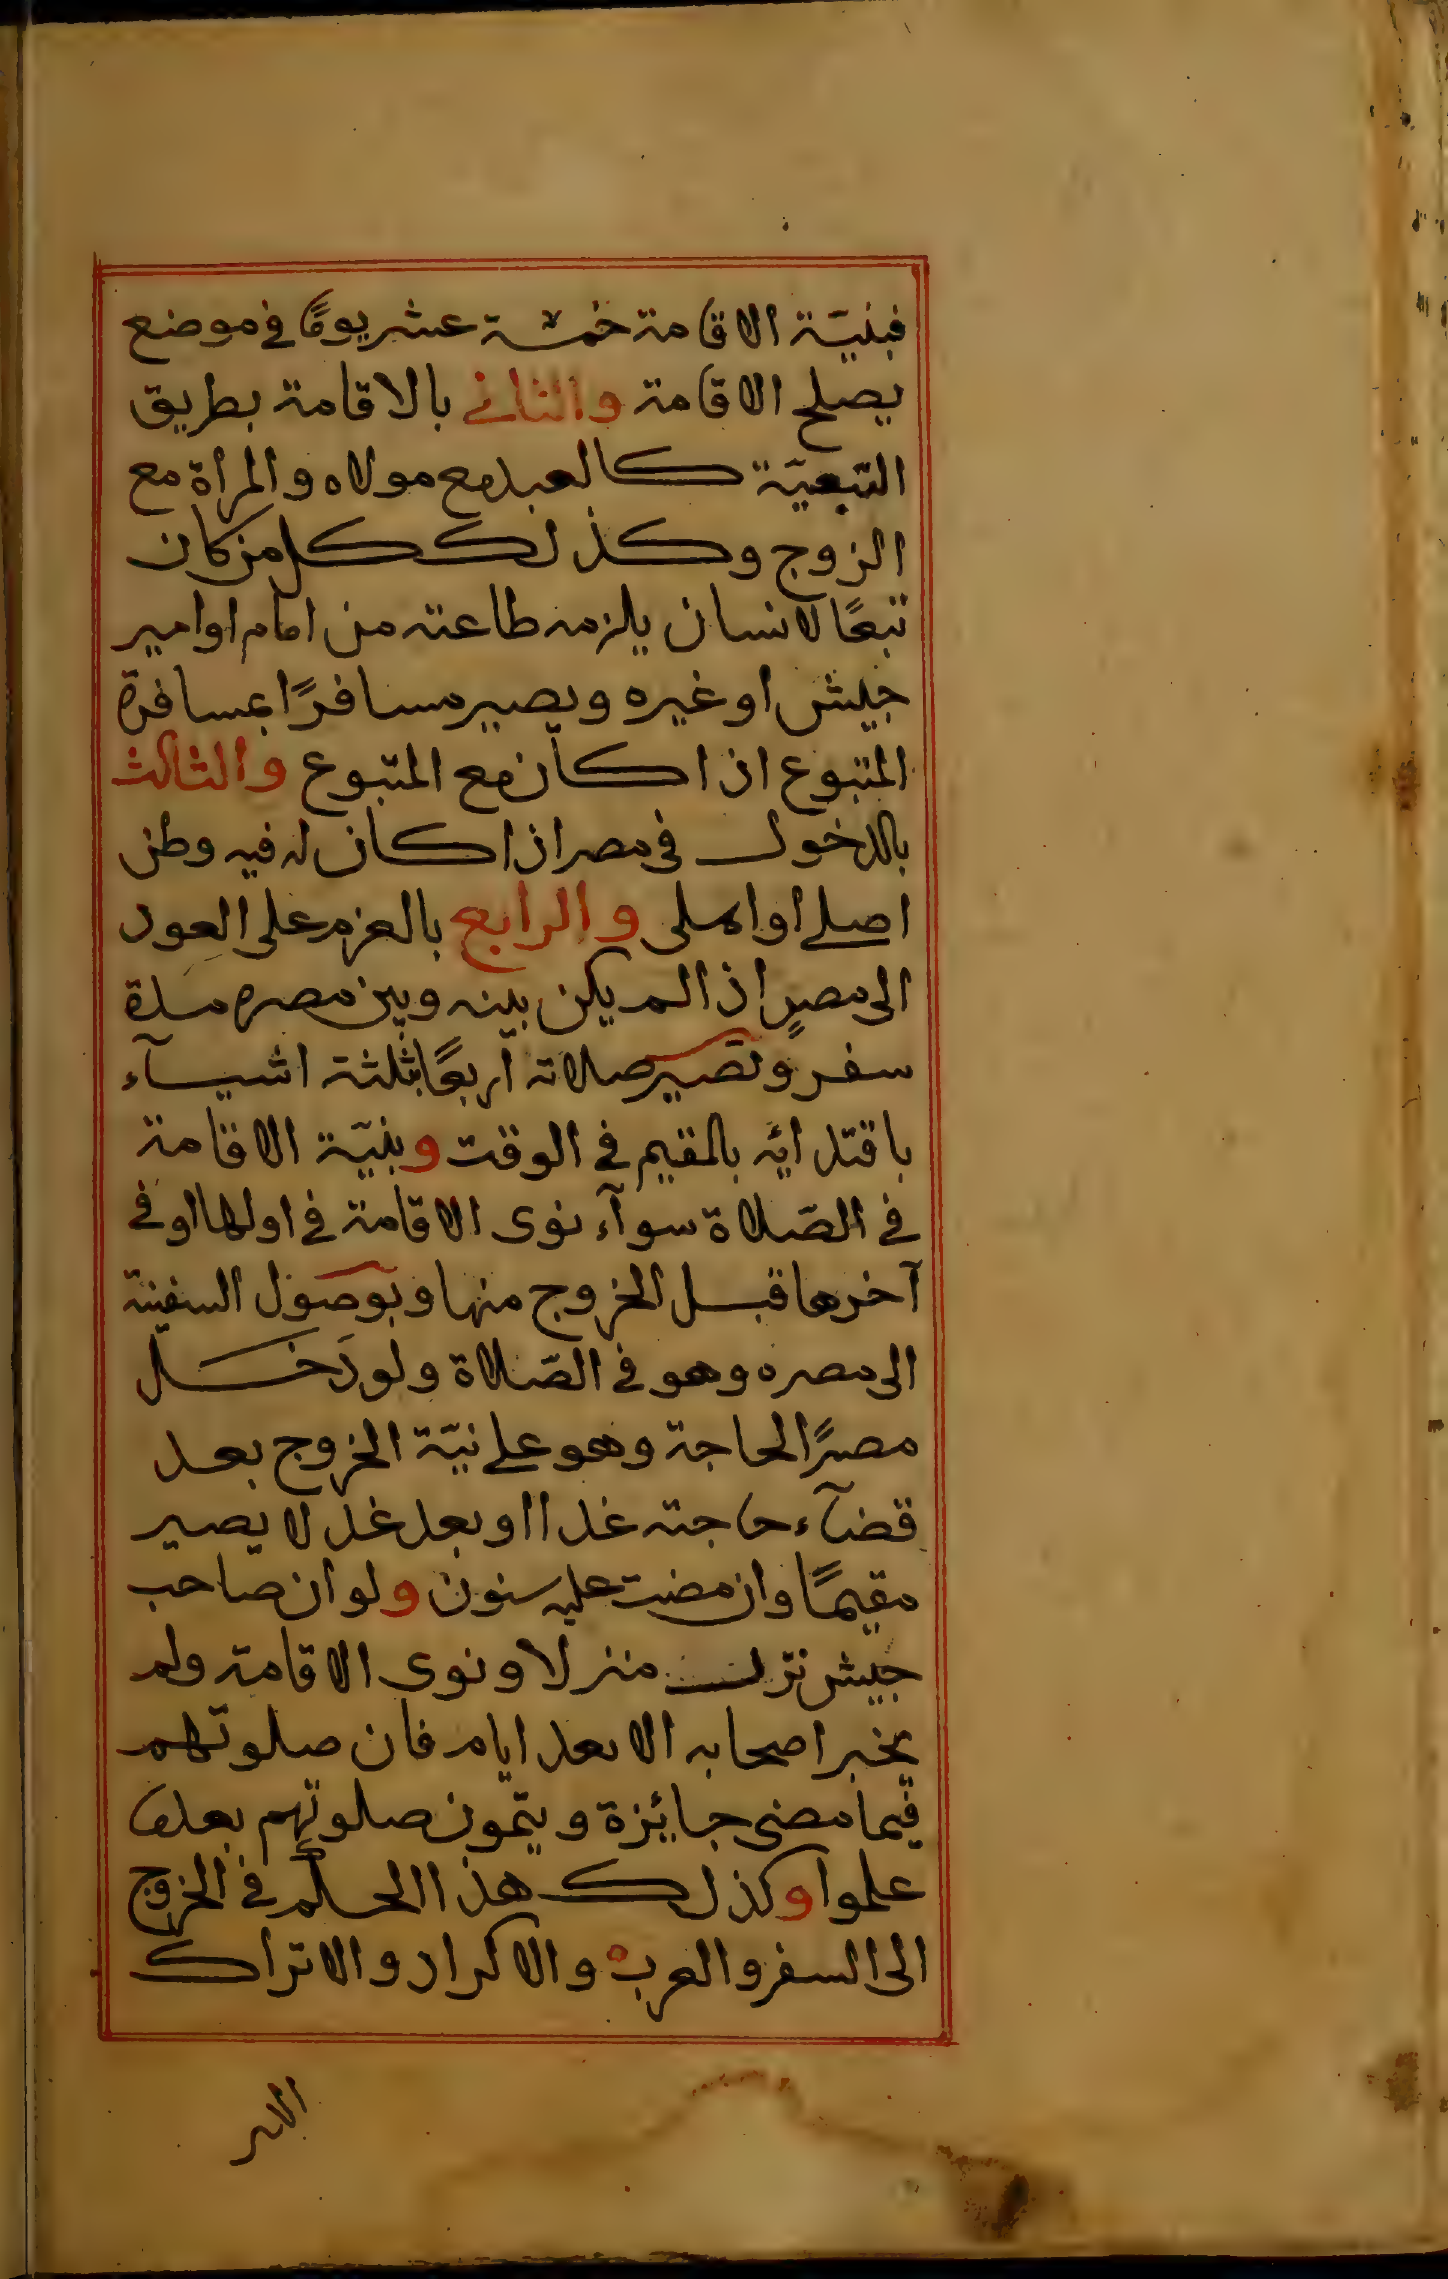 فبنيّة الاقامة خمسة عشر يومًا في موضع
يصلح الاقامة والثاني بالاقامة بطريق
التبعيّة كالعبد مع مولاه والمرأة مع
الزوج وكذلك كل من كان
تبعًا لانسان يلزمه طاعته من امام او امير
جيش او غيره ويصير مسافرًا بمسافرة
المتبوع اذا كان مع المتبوع والثالث
بالدخول في مصر اذا كان له فيه وطن
اصلي او اهلى والرابع بالعزم على العود
الى مصرٍ اذا لم يكن بينه وبين مصره مدة
سفر وتصير صلاته اربعًا بثلثة اشيآء
باقتدائه بالمقيم في الوقت وبنيّة الاقامة
في الصّلاة سوآء نوى الاقامة في اولها او في
آخرها قبل الخروج منها وبوصول السفينة
الى مصره وهو في الصّلاة ولو دَخَل
مصرًا لحاجة وهو على نيّة الخروج بعد
قضآء حاجته غدا او بعد غد لا يصير
مقيمًا وان مضت عليه سنون ولو ان صاحب
جيش نزل منزلا ونوى الاقامة ولم
يخبر اصحابه الا بعد ايام فان صلوتهم
فيما مضى جائزة ويتمون صلوتهم بعد ما
علموا وكذلك هذا الحكم في الخروج
الى السفر والعرب والاكراد والاتراك